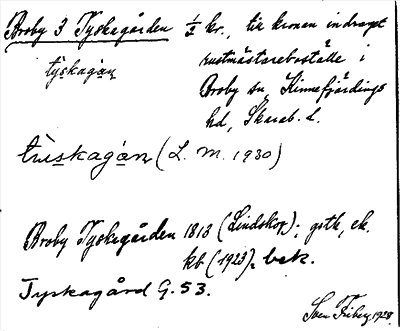 Broby 3 Tyskagården ½ kr., till kronan indraget
rustmästareboställe i
tyskagán
Broby sn, Kinnefjärdings
hd, Skarab. l.
tùskagán (L. M. 1930)
Broby Tyskegården 1813 (Lindskog); geth, ek.
kb (1923), bek.
Tyskagård G. 53.
Sven Friberg 1928.